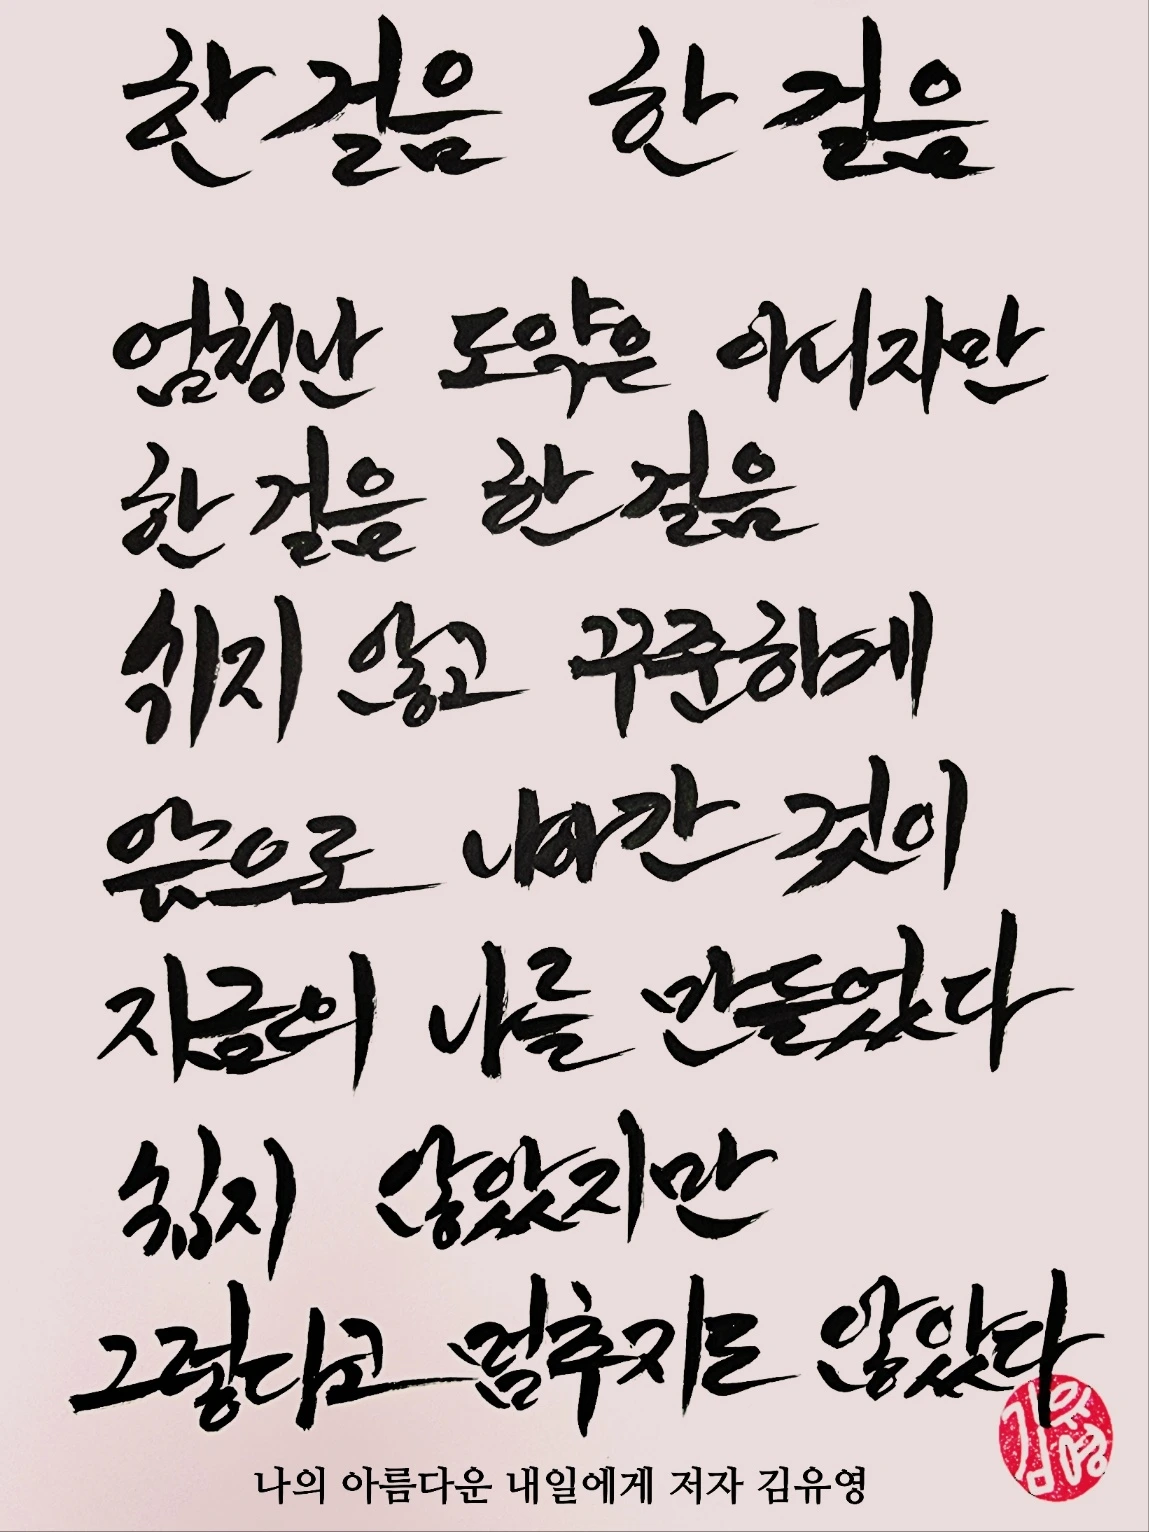 한 걸음 한 걸음
엄청난 도약은 아니지만
한 걸음 한 걸음
쉬지 않고 꾸준하게
앞으로 나아간 것이
지금의 나를 만들었다
쉽지 않았지만
그렇다고 멈추지도 않았다
김유영
나의 아름다운 내일에게 저자 김유영